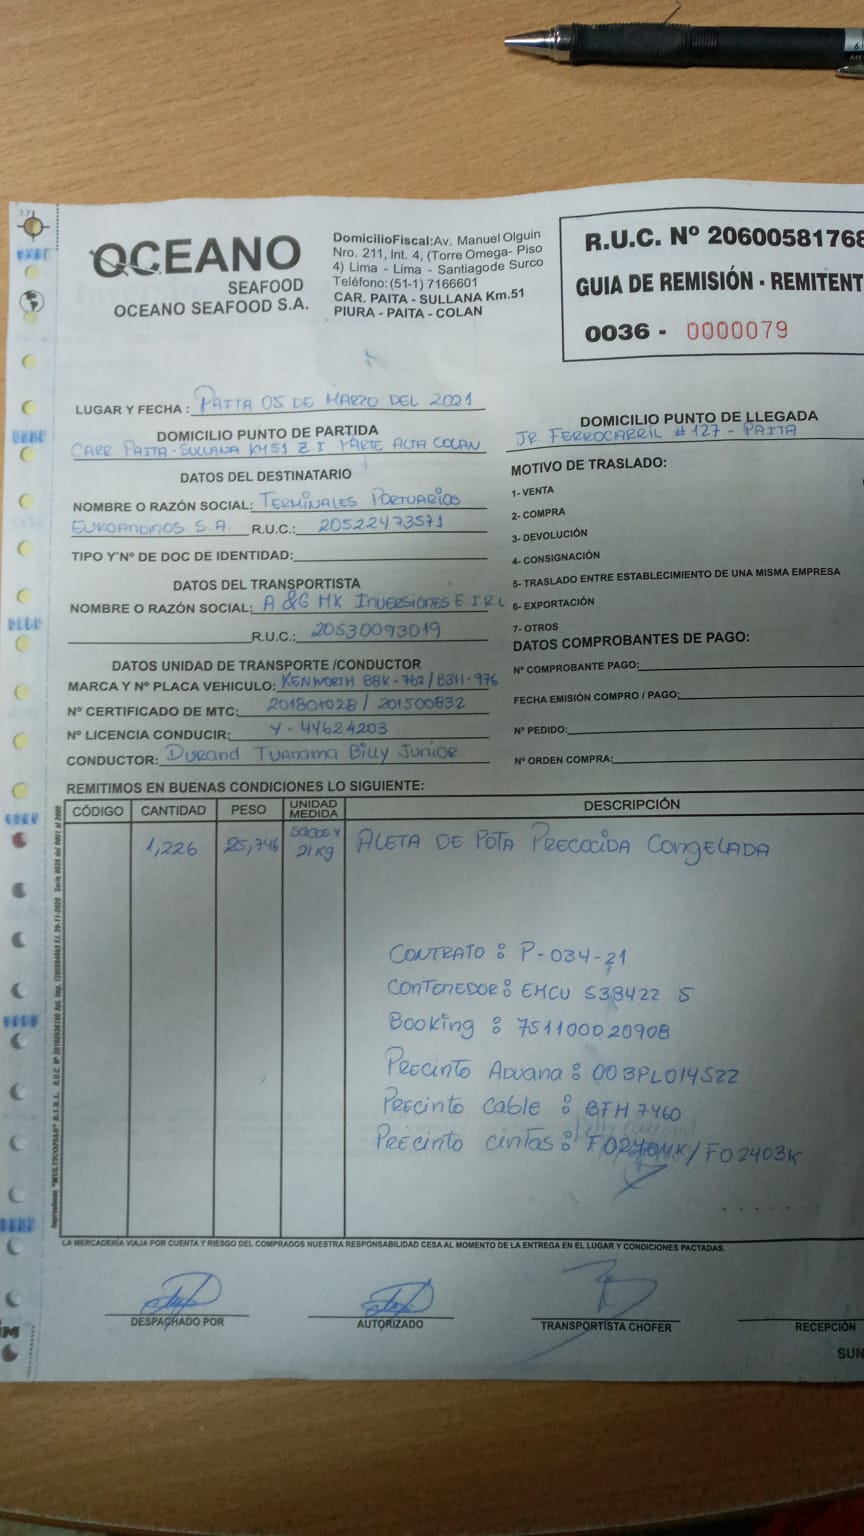 OCEANO
SEAFOOD
OCEANO SEAFOOD S.A.
DomicilioFiscal:Av. Manuel Olguin
Nro. 211, Int. 4, (Torre Omega- Piso
4) Lima - Lima - Santiagode Surco
Teléfono:(51-1) 7166601
CAR. PAITA - SULLANA Km.51
PIURA - PAITA - COLAN
R.U.C. Nº 20600581768
GUIA DE REMISIÓN - REMITENT
0036 - 0000079
LUGAR Y FECHA : PAITA 05 DE MARZO DEL 2021
DOMICILIO PUNTO DE PARTIDA
CARR PAITA-SULLANA KM51 Z.I PARTE ALTA COLAN
DOMICILIO PUNTO DE LLEGADA
JR. FERROCARRIL # 127 - PAITA
DATOS DEL DESTINATARIO
NOMBRE O RAZÓN SOCIAL: TERMINALES PORTUARIOS
EUROANDINOS S.A. R.U.C.: 20522473571
TIPO Y Nº DE DOC DE IDENTIDAD:
DATOS DEL TRANSPORTISTA
NOMBRE O RAZÓN SOCIAL: A &G MK INVERSIONES E.I.R.L
R.U.C.: 20530093019
DATOS UNIDAD DE TRANSPORTE /CONDUCTOR
MARCA Y Nº PLACA VEHICULO: KENWORTH B8K-762/B3H-976
Nº CERTIFICADO DE MTC: 201801028 / 201500832
Nº LICENCIA CONDUCIR: Y-44624203
CONDUCTOR: DURAND TUANAMA Billy JUNIOR
MOTIVO DE TRASLADO:
1- VENTA
2- COMPRA
3- DEVOLUCIÓN
4- CONSIGNACIÓN
5- TRASLADO ENTRE ESTABLECIMIENTO DE UNA MISMA EMPRESA
6- EXPORTACIÓN
7- OTROS
DATOS COMPROBANTES DE PAGO:
Nº COMPROBANTE PAGO:
FECHA EMISIÓN COMPRO / PAGO:
Nº PEDIDO:
Nº ORDEN COMPRA:
REMITIMOS EN BUENAS CONDICIONES LO SIGUIENTE:
CÓDIGO CANTIDAD PESO UNIDAD MEDIDA DESCRIPCIÓN
1,226 25,746 SACOS X 21 Kg ALETA DE POTA PRECOCIDA CONGELADA
CONTRATO : P-034-21
CONTENEDOR: EMCU 538422 5
Booking : 751100020908
PRECINTO ADUANA : 003PL014522
PRECINTO CABLE : BFH 7460
PRECINTO CINTAS : F02404K/F02403K
LA MERCADERÍA VIAJA POR CUENTA Y RIESGO DEL COMPRADOS NUESTRA RESPONSABILIDAD CESA AL MOMENTO DE LA ENTREGA EN EL LUGAR Y CONDICIONES PACTADAS.
DESPACHADO POR
AUTORIZADO
TRANSPORTISTA CHOFER
RECEPCIÓN
SUN